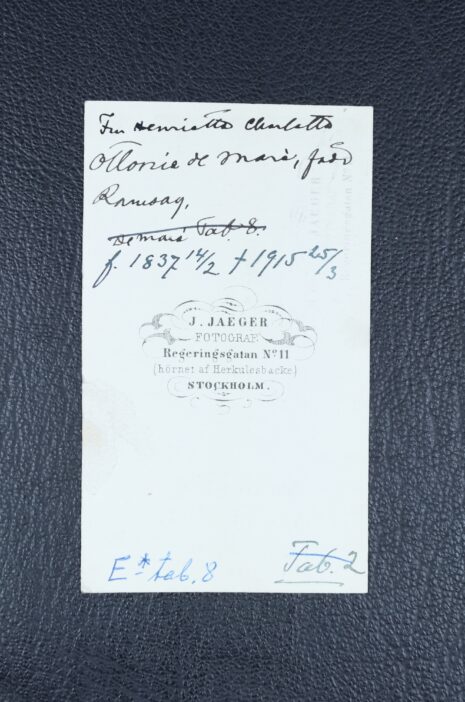 Fru Henrietta Charlotta
Ottonie de Maré, född
Ramsay,
de Maré Tab. 8.
f. 1837 14/2 † 1915 25/3
J. JAEGER
FOTOGRAF
Regeringsgatan No 11
(hörnet af Herkulesbacke)
STOCKHOLM.
E* tab. 8
Tab. 2